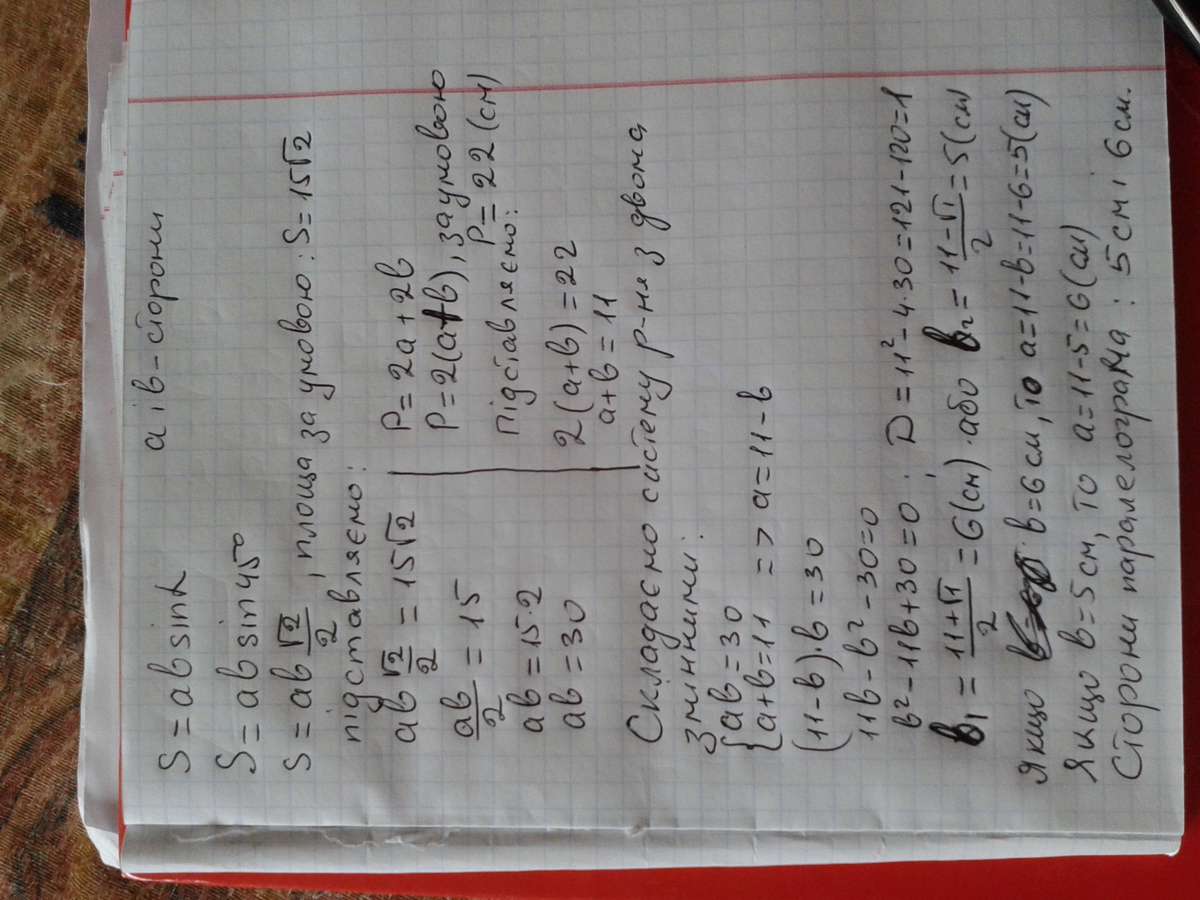 S = ab sin α        a і b - сторони
S = ab sin 45°
S = ab √2/2, площа за умовою: S = 15√2
підставляємо:
ab √2/2 = 15√2
ab/2 = 15
ab = 15·2
ab = 30
P = 2a + 2b
P = 2(a+b), за умовою
P = 22 (см)
Підставляємо:
2(a+b) = 22
a+b = 11
Складаємо систему р-ня з двома
змінними:
{ab = 30
{a+b = 11 => a = 11-b
(11-b)·b = 30
11b - b² - 30 = 0
b² - 11b + 30 = 0; D = 11² - 4·30 = 121 - 120 = 1
b₁ = (11+√1)/2 = 6 (см) або b₂ = (11-√1)/2 = 5 (см)
Якщо b = 6 см, то a = 11-b = 11-6 = 5 (см)
Якщо b = 5 см, то a = 11-5 = 6 (см)
Сторони паралелограма: 5 см і 6 см.